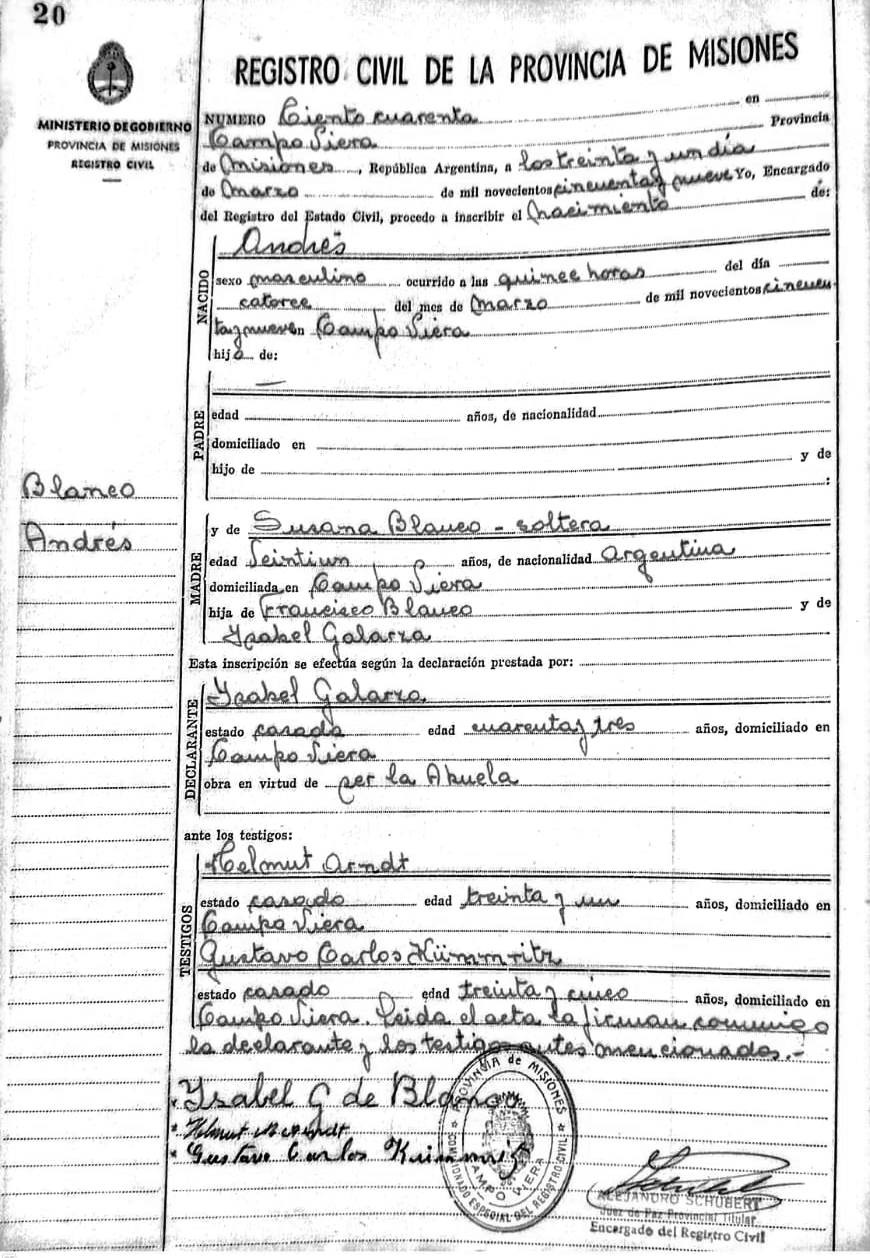 20
MINISTERIO DE GOBIERNO
PROVINCIA DE MISIONES
REGISTRO CIVIL
REGISTRO CIVIL DE LA PROVINCIA DE MISIONES
NUMERO Ciento cuarenta en
Campo Viera Provincia
de Misiones, República Argentina, a los treinta y un dia
de Marzo de mil novecientos cincuenta y nueve Yo, Encargado
del Registro del Estado Civil, procedo a inscribir el Nacimiento de:
NACIDO
Andrés
sexo masculino ocurrido a las quince horas del día
catorce del mes de Marzo de mil novecientos cincuen
ta y nueve en Campo Viera
hijo de:
PADRE
—
edad años, de nacionalidad
domiciliado en
hijo de y de
:
Blanco
Andrés
MADRE
y de Susana Blanco - soltera
edad Veintiun años, de nacionalidad Argentina
domiciliada en Campo Viera
hija de Francisco Blanco y de
Ysabel Galarza
Esta inscripción se efectúa según la declaración prestada por:
DECLARANTE
Ysabel Galarza
estado casada edad cuarenta y tres años, domiciliado en
Campo Viera
obra en virtud de ser la Abuela
ante los testigos:
TESTIGOS
Helmut Arndt
estado casado edad treinta y un años, domiciliado en
Campo Viera
Gustavo Carlos Kümmritz
estado casado edad treinta y cinco años, domiciliado en
Campo Viera. Leida el acta la firman conmigo
la declarante y los testigos antes mencionados.-
Ysabel G de Blanco
Helmut Arndt
Gustavo Carlos Kümmritz
PROVINCIA de MISIONES
CAMPO VIERA
COMISIONADO ESPECIAL DEL REGISTRO CIVIL
ALEJANDRO SCHUBERT
Juez de Paz Provincial Titular
Encargado del Registro Civil